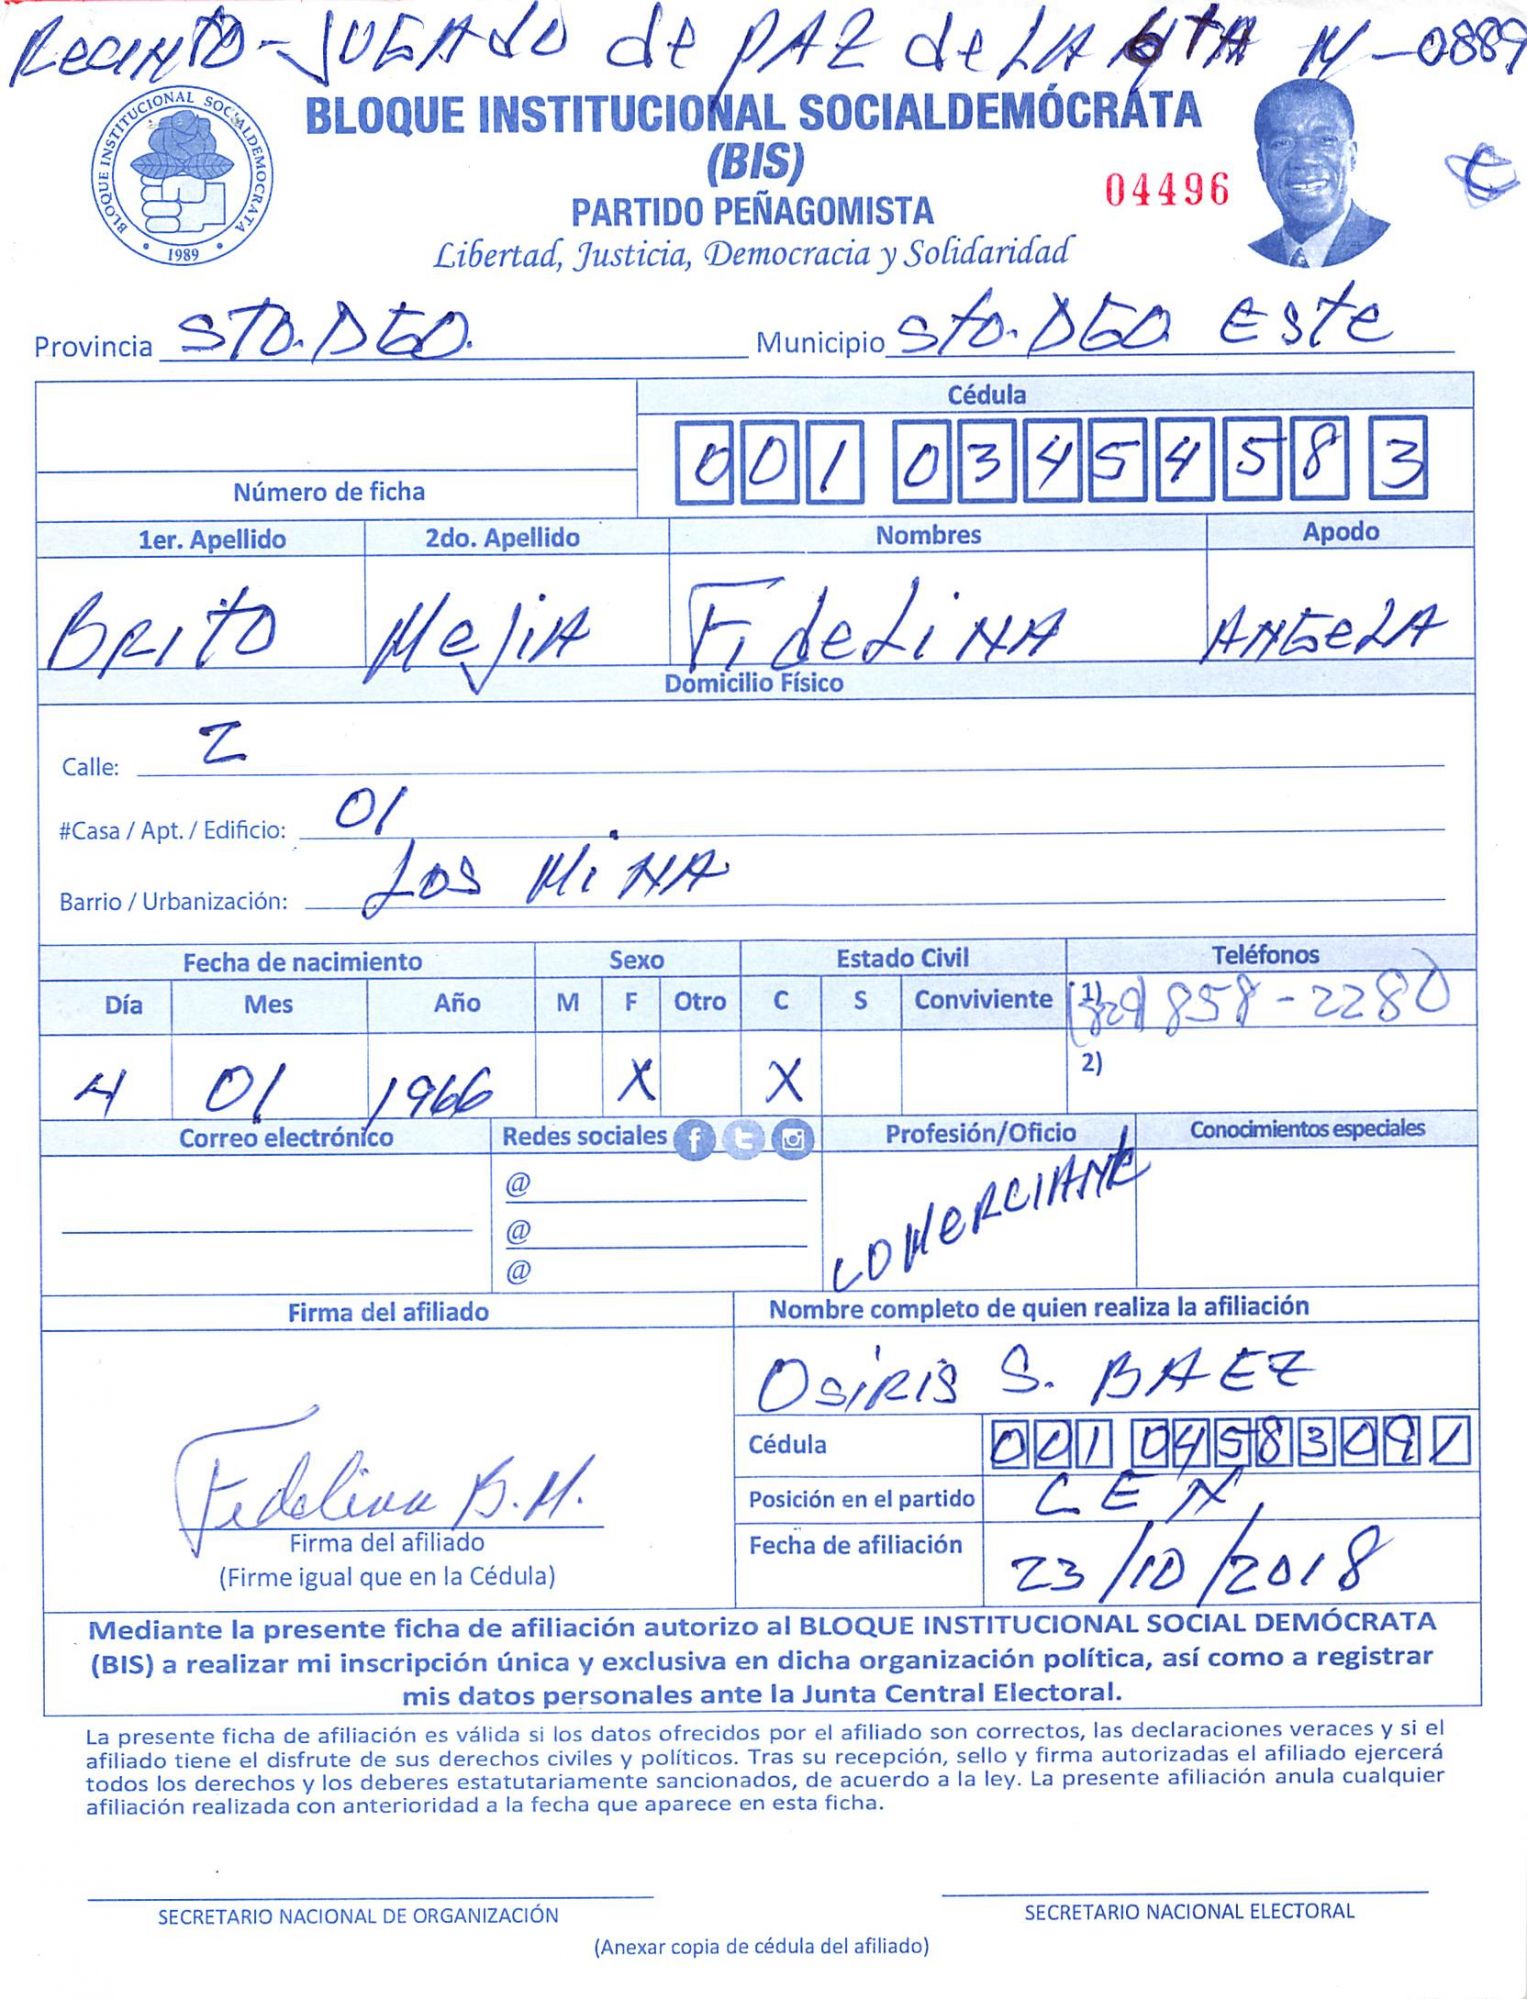 Recinto-JUGADO de PAZ de LA 6tA M-0889
BLOQUE INSTITUCIONAL SOCIALDEMOCRATA
1989
BLOQUE INSTITUCIONAL SOCIALDEMÓCRATA
(BIS)
04496
PARTIDO PEÑAGOMISTA
Libertad, Justicia, Democracia y Solidaridad
Provincia STO. DGO. Municipio Sto. DGO Este
Cédula
001 0345458 3
Número de ficha
1er. Apellido 2do. Apellido Nombres Apodo
BRITO MejiA FideLiNA ANGeLA
Domicilio Físico
Calle: 2
#Casa / Apt. / Edificio: 01
Barrio / Urbanización: LOS MiNA
Fecha de nacimiento Sexo Estado Civil Teléfonos
Día Mes Año M F Otro C S Conviviente 1) (829) 858-2280
4 01 1966 X X 2)
Correo electrónico Redes sociales Profesión/Oficio Conocimientos especiales
@
@
@
COMERCIANTE
Firma del afiliado Nombre completo de quien realiza la afiliación
OsiRis S. BAEZ
Cédula 001 0458309 1
Fidelina B.M.
Posición en el partido CEN
Firma del afiliado
(Firme igual que en la Cédula)
Fecha de afiliación 23/10/2018
Mediante la presente ficha de afiliación autorizo al BLOQUE INSTITUCIONAL SOCIAL DEMÓCRATA
(BIS) a realizar mi inscripción única y exclusiva en dicha organización política, así como a registrar
mis datos personales ante la Junta Central Electoral.
La presente ficha de afiliación es válida si los datos ofrecidos por el afiliado son correctos, las declaraciones veraces y si el
afiliado tiene el disfrute de sus derechos civiles y políticos. Tras su recepción, sello y firma autorizadas el afiliado ejercerá
todos los derechos y los deberes estatutariamente sancionados, de acuerdo a la ley. La presente afiliación anula cualquier
afiliación realizada con anterioridad a la fecha que aparece en esta ficha.
SECRETARIO NACIONAL DE ORGANIZACIÓN SECRETARIO NACIONAL ELECTORAL
(Anexar copia de cédula del afiliado)